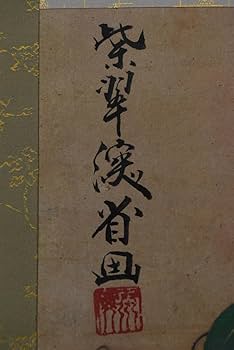 紫翠深省画